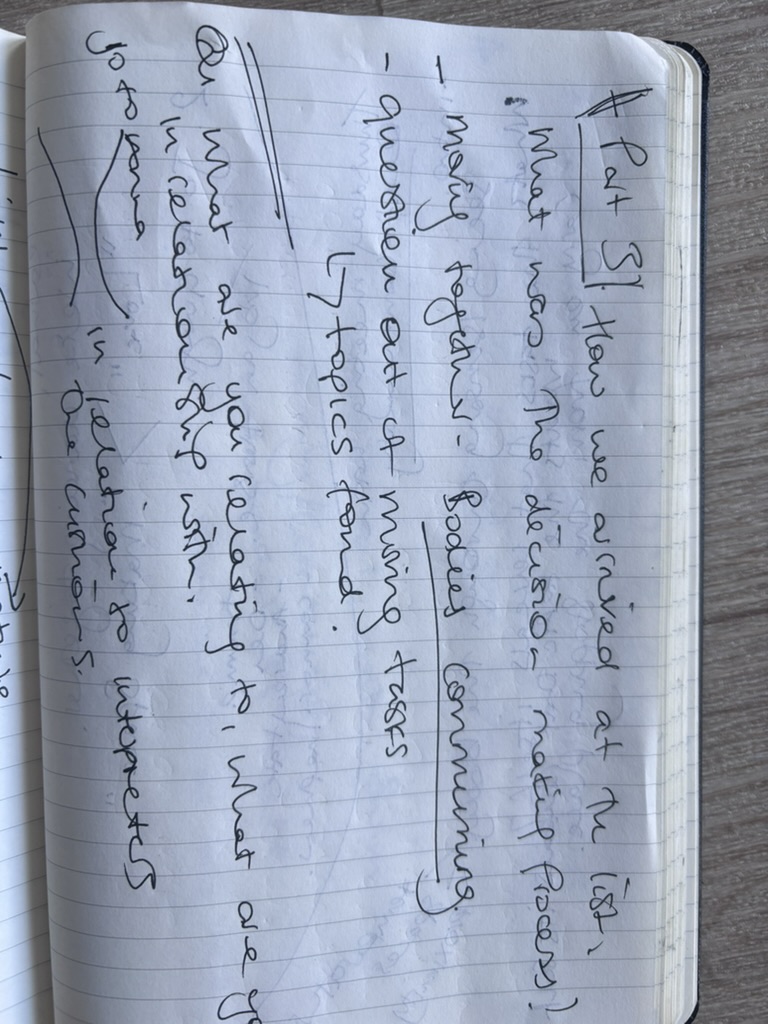 Part 3/. How we arrived at the list,
What was the decision making process?
- Moving together - Bodies communing.
- question out of moving tasks
↳ topics found.
Q: What are you relating to, what are yo
in relationship with.
in relation to interpreters
the cushions.